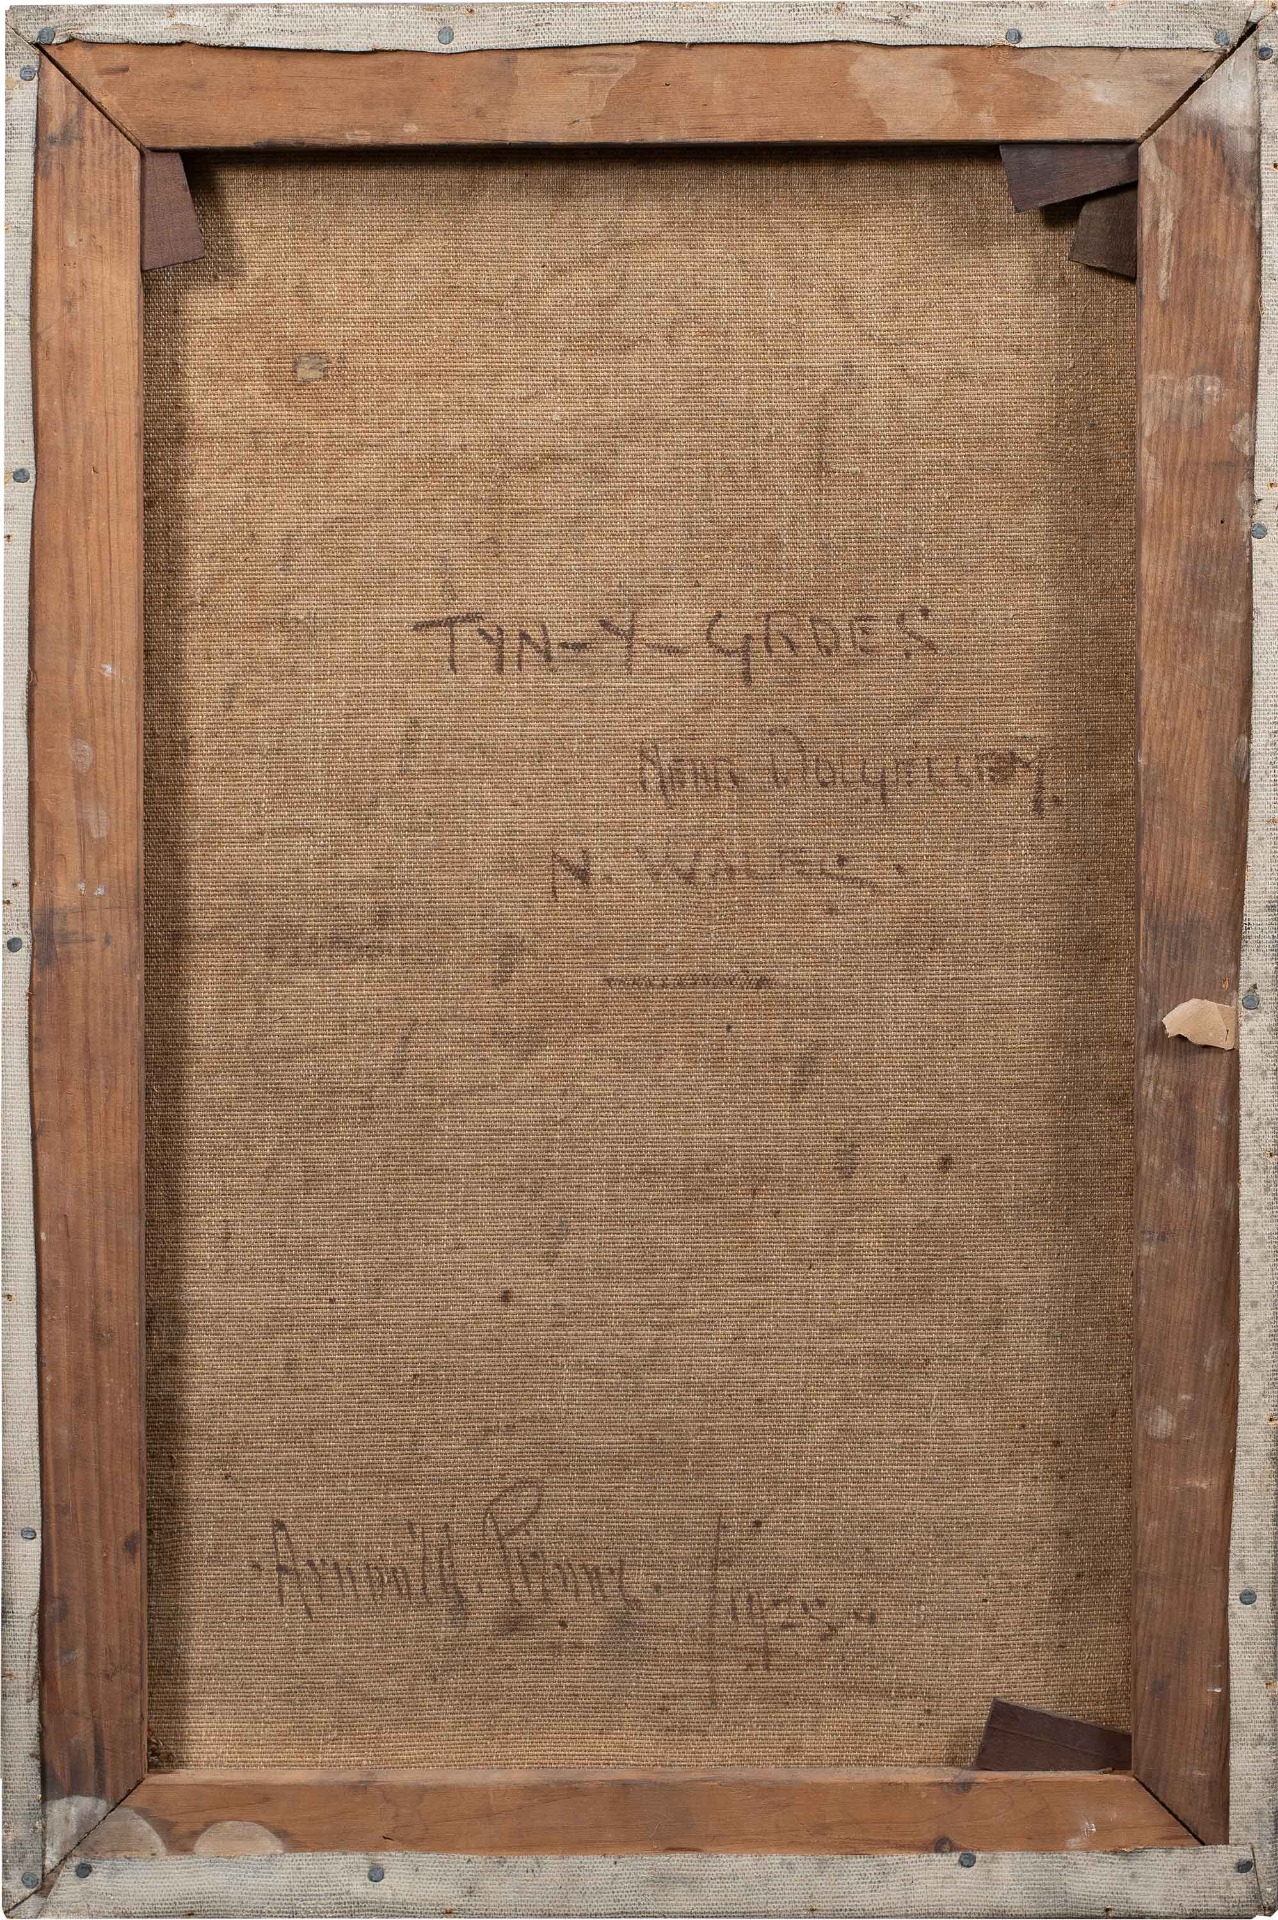 TYN-Y-GROES
NEAR DOLGELLEY.
N. WALES.
Arnould.